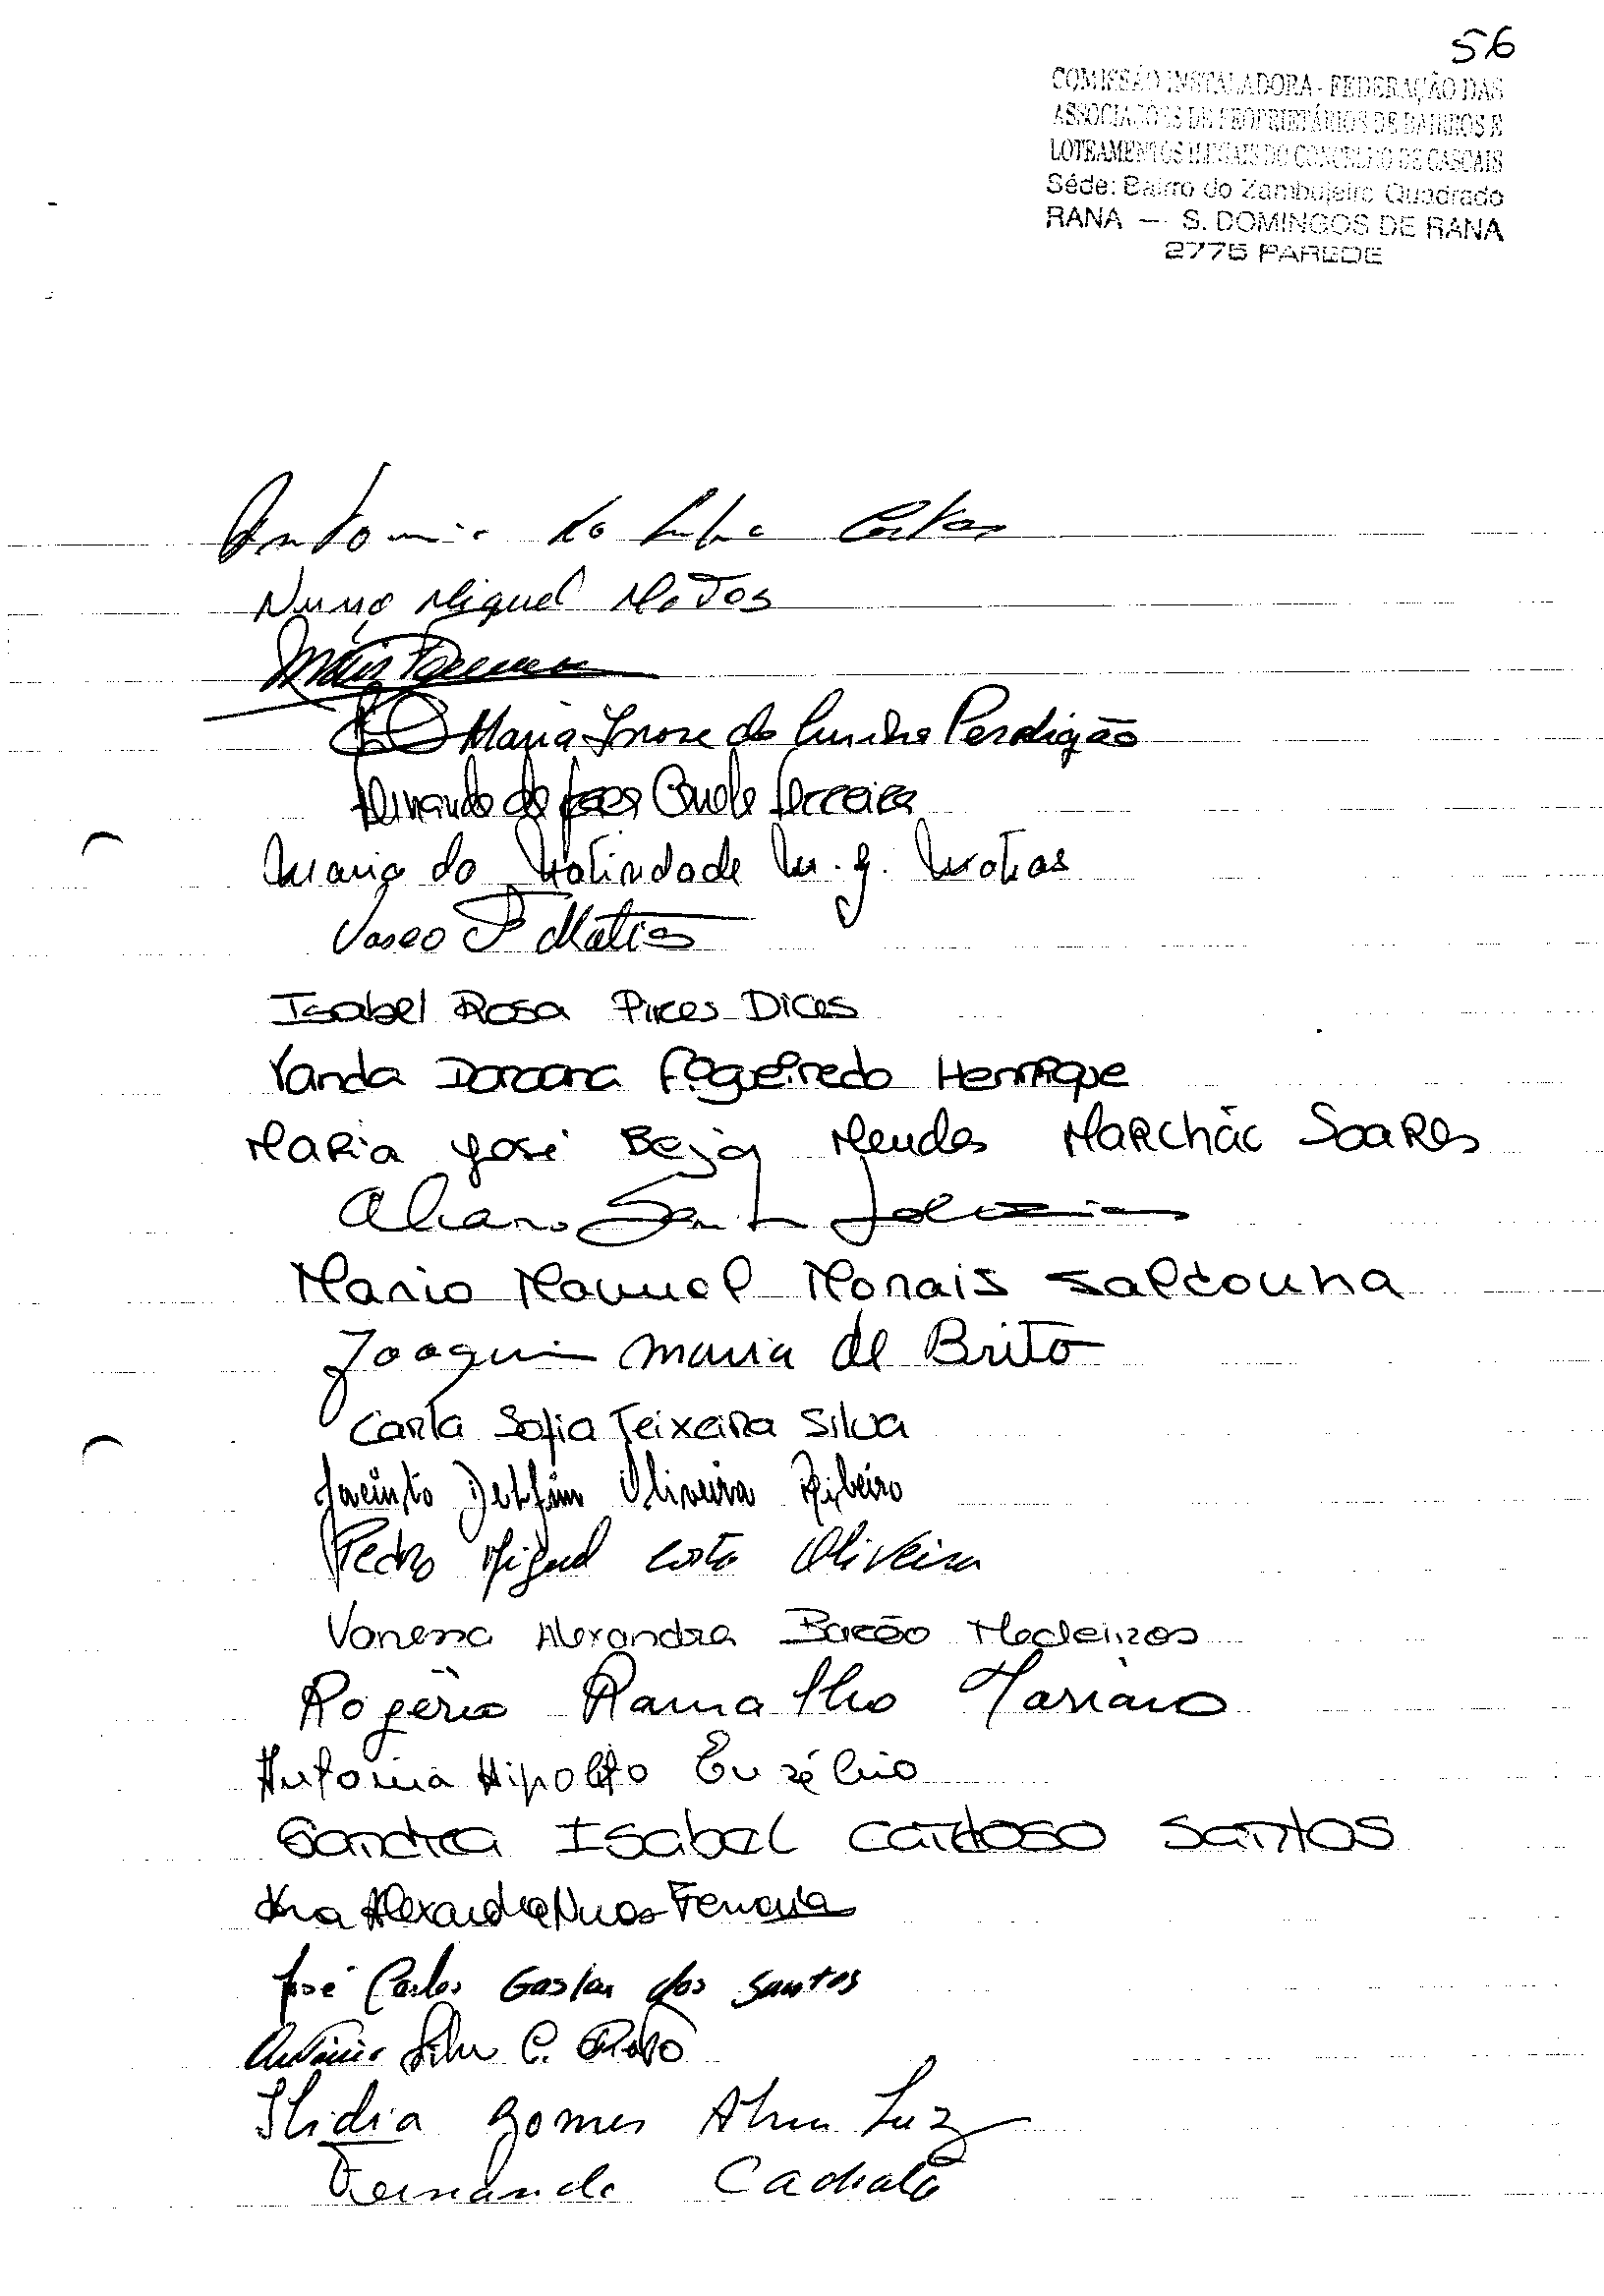 56
COMISSÃO INSTALADORA - FEDERAÇÃO DAS
ASSOCIAÇÕES DE PROPRIETÁRIOS DE BAIRROS E
LOTEAMENTOS ILEGAIS DO CONCELHO DE CASCAIS
Séde: Bairro do Zambujeiro Quadrado
RANA — S. DOMINGOS DE RANA
2775 PAREDE
Antonio
Nuno Miguel Matos
Maria da Cunha Perdigão
Ferreira
Maria da Natividade M. G. Matias
Vasco F Matias
Isabel Rosa Pires Dias
Vanda Figueiredo Henrique
Maria José Beja Mendes Marchão Soares
Mario Manuel Morais Saldanha
Joaquim Maria de Brito
Carla Sofia Teixeira Silva
Jacinto Delfim Oliveira Ribeiro
Pedro Miguel Costa Oliveira
Vanessa Alexandra Barão Medeiros
Rogério Ramalho Mariano
Antonia Hipolito Euzébio
Sandra Isabel Cardoso Santos
Ana Alexandra Ferreira
José Carlos Gaspar dos Santos
António Silva C.
Ilidia Gomes Luz
Cachola